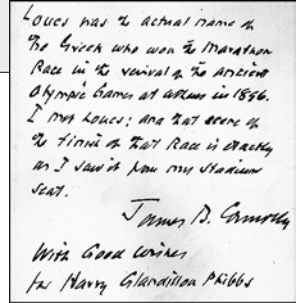 Loues was the actual name of
the Greek who won the Marathon
Race in the revival of the ancient
Olympic Games at Athens in 1896.
I met Loues; and that scene of
the finish of that Race is exactly
as I saw it from my stadium
seat.
James B. Connolly
With Good wishes
for Harry Glandillon Phibbs